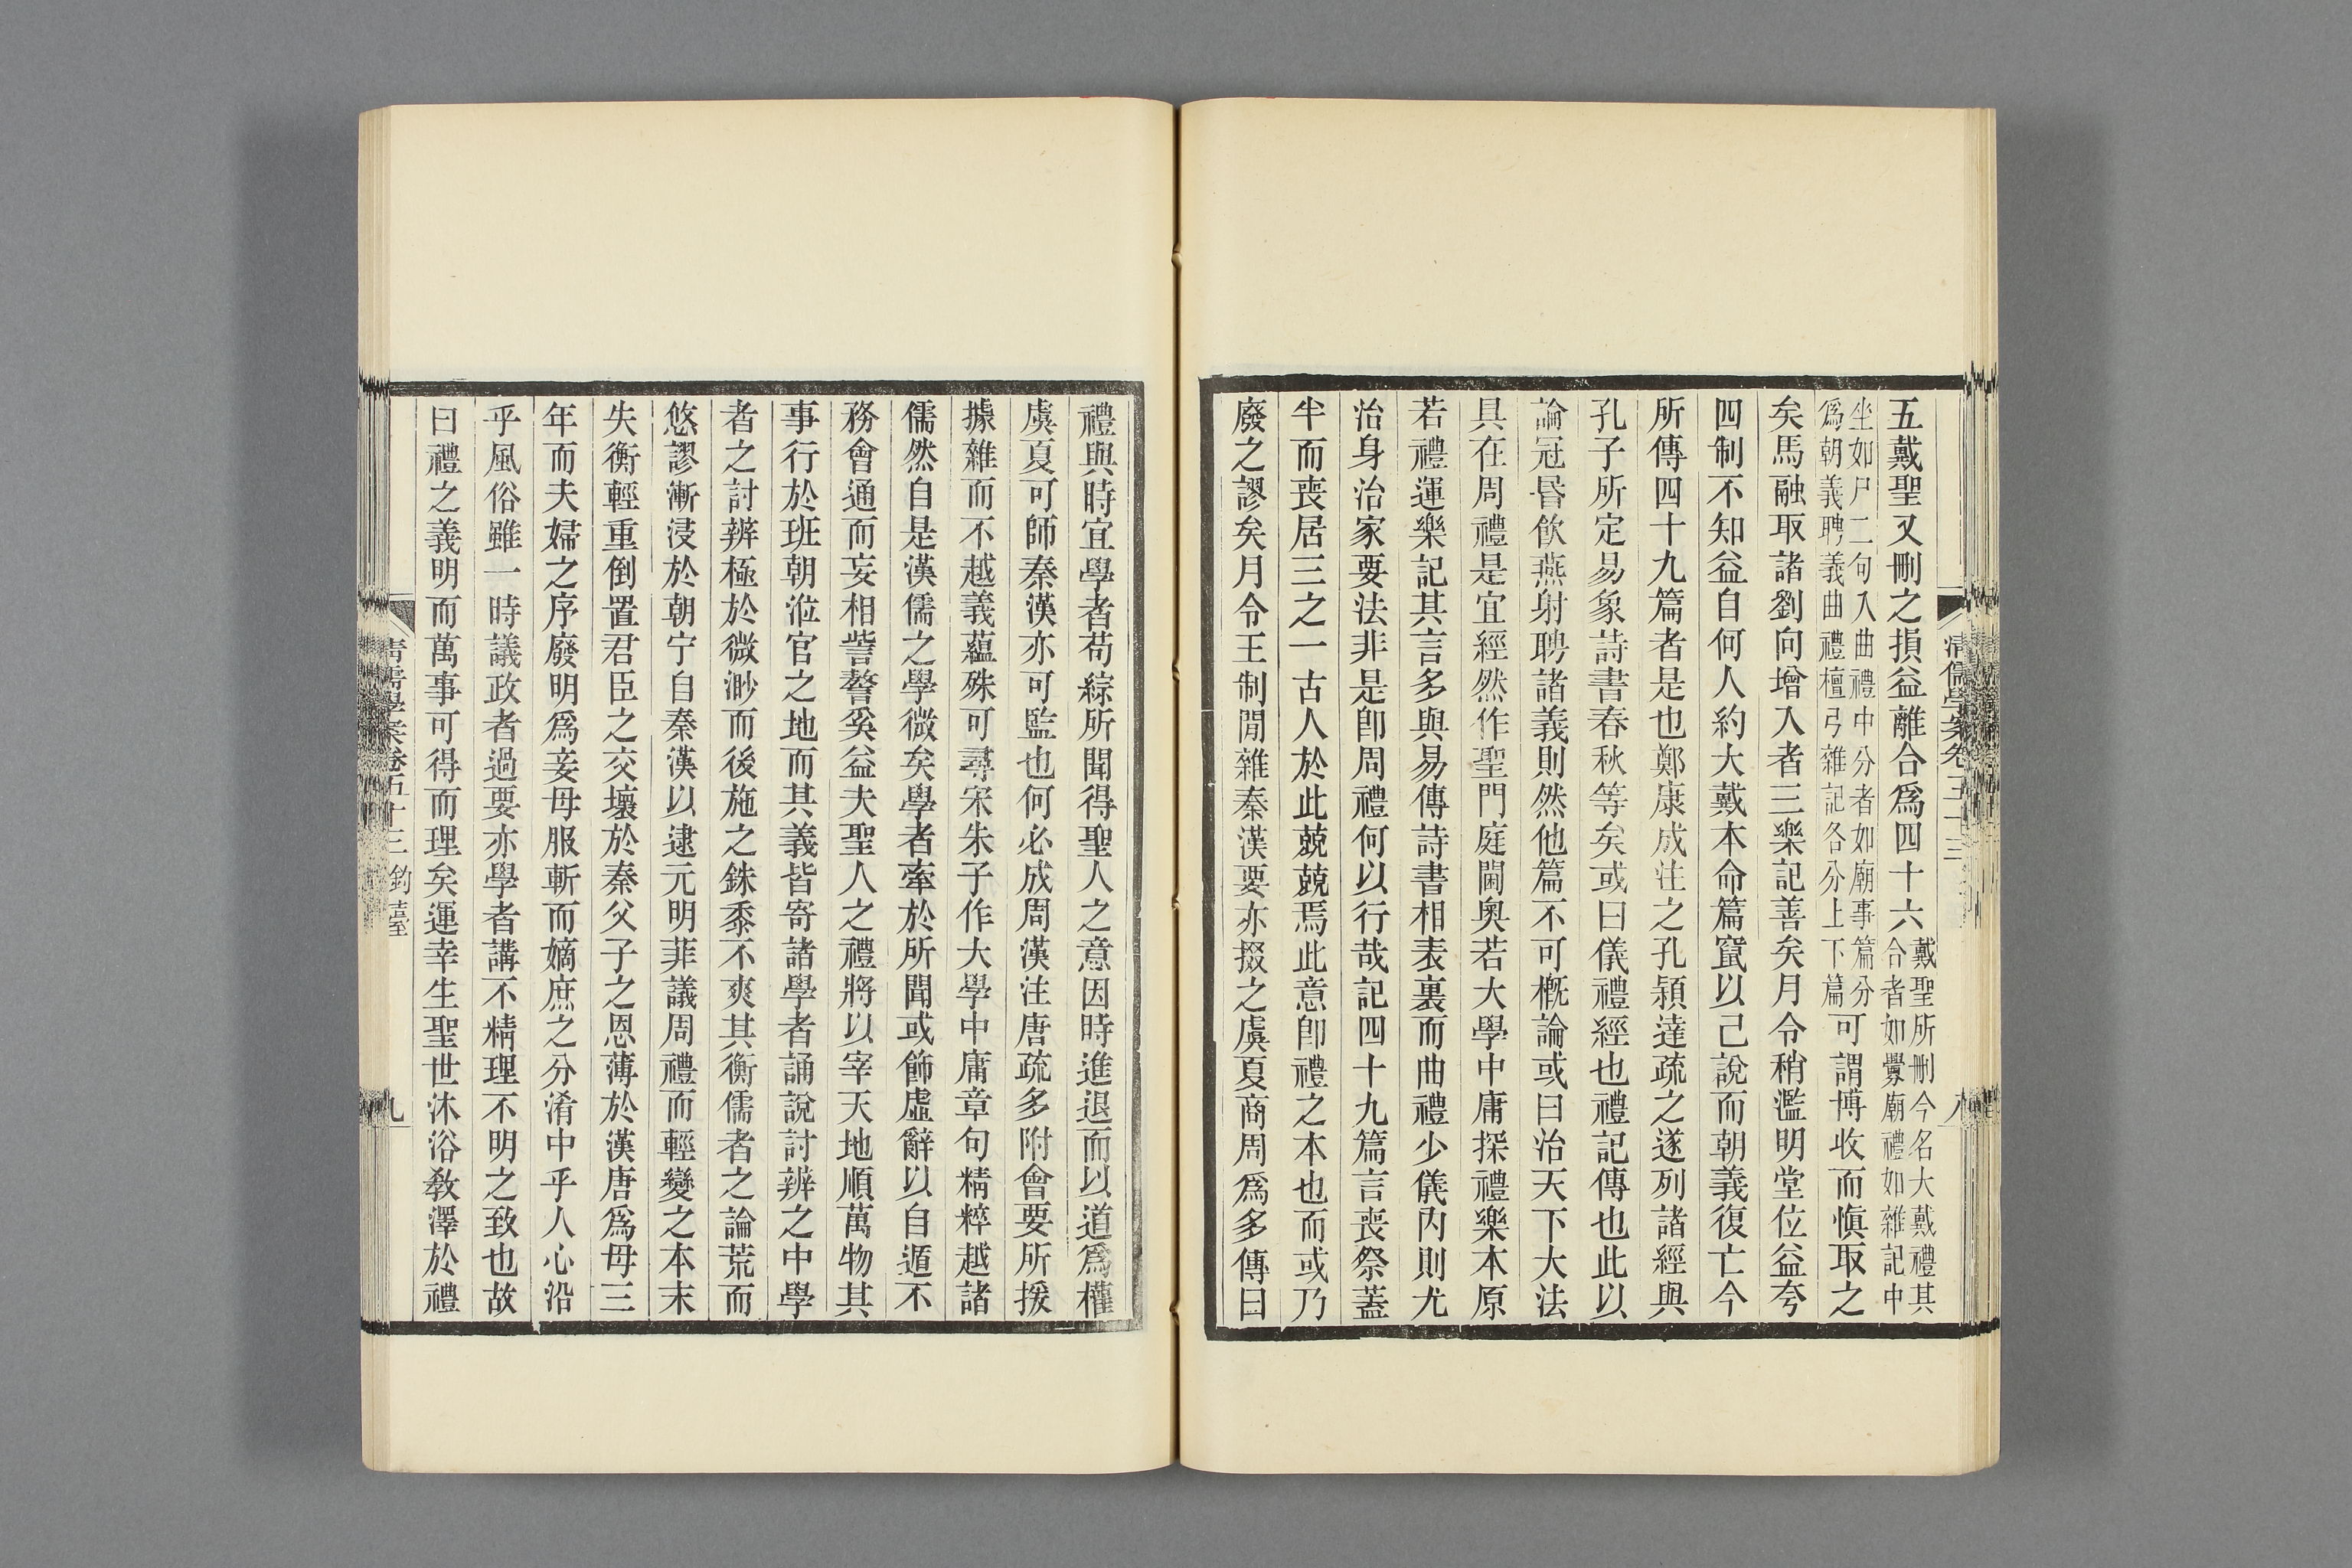 五戴聖又刪之損益離合爲四十六戴聖所刪今名大戴禮其
合者如釁廟禮如雜記中
坐如尸二句入曲禮中分者如廟事篇分
爲朝義聘義曲禮檀弓雜記各分上下篇可謂博收而愼取之
矣馬融取諸劉向增入者三樂記善矣月令稍濫明堂位益夸
四制不知益自何人約大戴本命篇竄以己說而朝義復亡今
所傳四十九篇者是也鄭康成注之孔穎達疏之遂列諸經與
孔子所定易象詩書春秋等矣或曰儀禮經也禮記傳也此以
論冠昏飲燕射聘諸義則然他篇不可槪論或曰治天下大法
具在周禮是宜經然作聖門庭閫奧若大學中庸探禮樂本原
若禮運樂記其言多與易傳詩書相表裏而曲禮少儀內則尤
治身治家要法非是卽周禮何以行哉記四十九篇言喪祭蓋
半而喪居三之一古人於此兢兢焉此意卽禮之本也而或乃
廢之謬矣月令王制閒雜秦漢要亦掇之虞夏商周爲多傳曰
清儒學案卷五十三
八
禮與時宜學者苟綜所聞得聖人之意因時進退而以道爲權
虞夏可師秦漢亦可監也何必成周漢注唐疏多附會要所援
據雜而不越義蘊殊可尋宋朱子作大學中庸章句精粹越諸
儒然自是漢儒之學微矣學者牽於所聞或飾虛辭以自遁不
務會通而妄相訾謷奚益夫聖人之禮將以宰天地順萬物其
事行於班朝涖官之地而其義皆寄諸學者誦說討辨之中學
者之討辨極於微渺而後施之銖黍不爽其衡儒者之論荒而
悠謬漸浸於朝宁自秦漢以逮元明菲議周禮而輕變之本末
失衡輕重倒置君臣之交壞於秦父子之恩薄於漢唐爲母三
年而夫婦之序廢明爲妾母服斬而嫡庶之分淆中乎人心沿
乎風俗雖一時議政者過要亦學者講不精理不明之致也故
曰禮之義明而萬事可得而理矣運幸生聖世沐浴敎澤於禮
清儒學案卷五十三 鈞臺
九